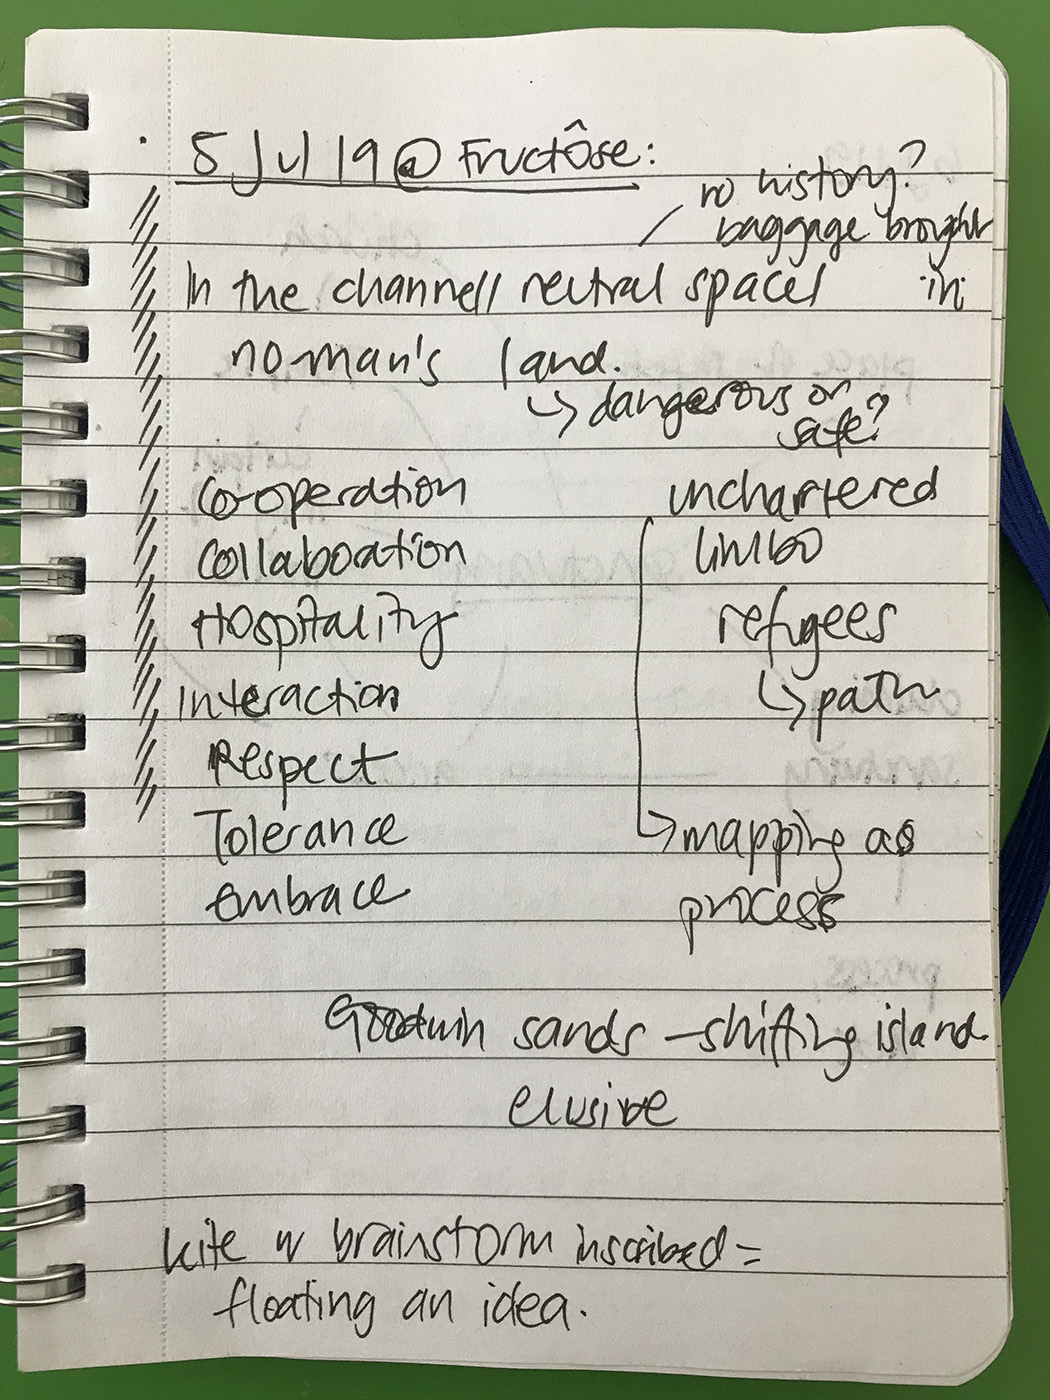 5 Jul 19 @ Fructôse:
no history?
baggage brought
in
In the channel/ neutral space/
no man's land.
↳ dangerous or
safe?
Co-operation
Collaboation
Hospitality
Interaction
Respect
Tolerance
embrace
unchartered
limbo
refugees
↳ path
→ mapping as
process
Goodwin sands – shifting island
elusive
kite w brainstorm inscribed =
floating an idea.